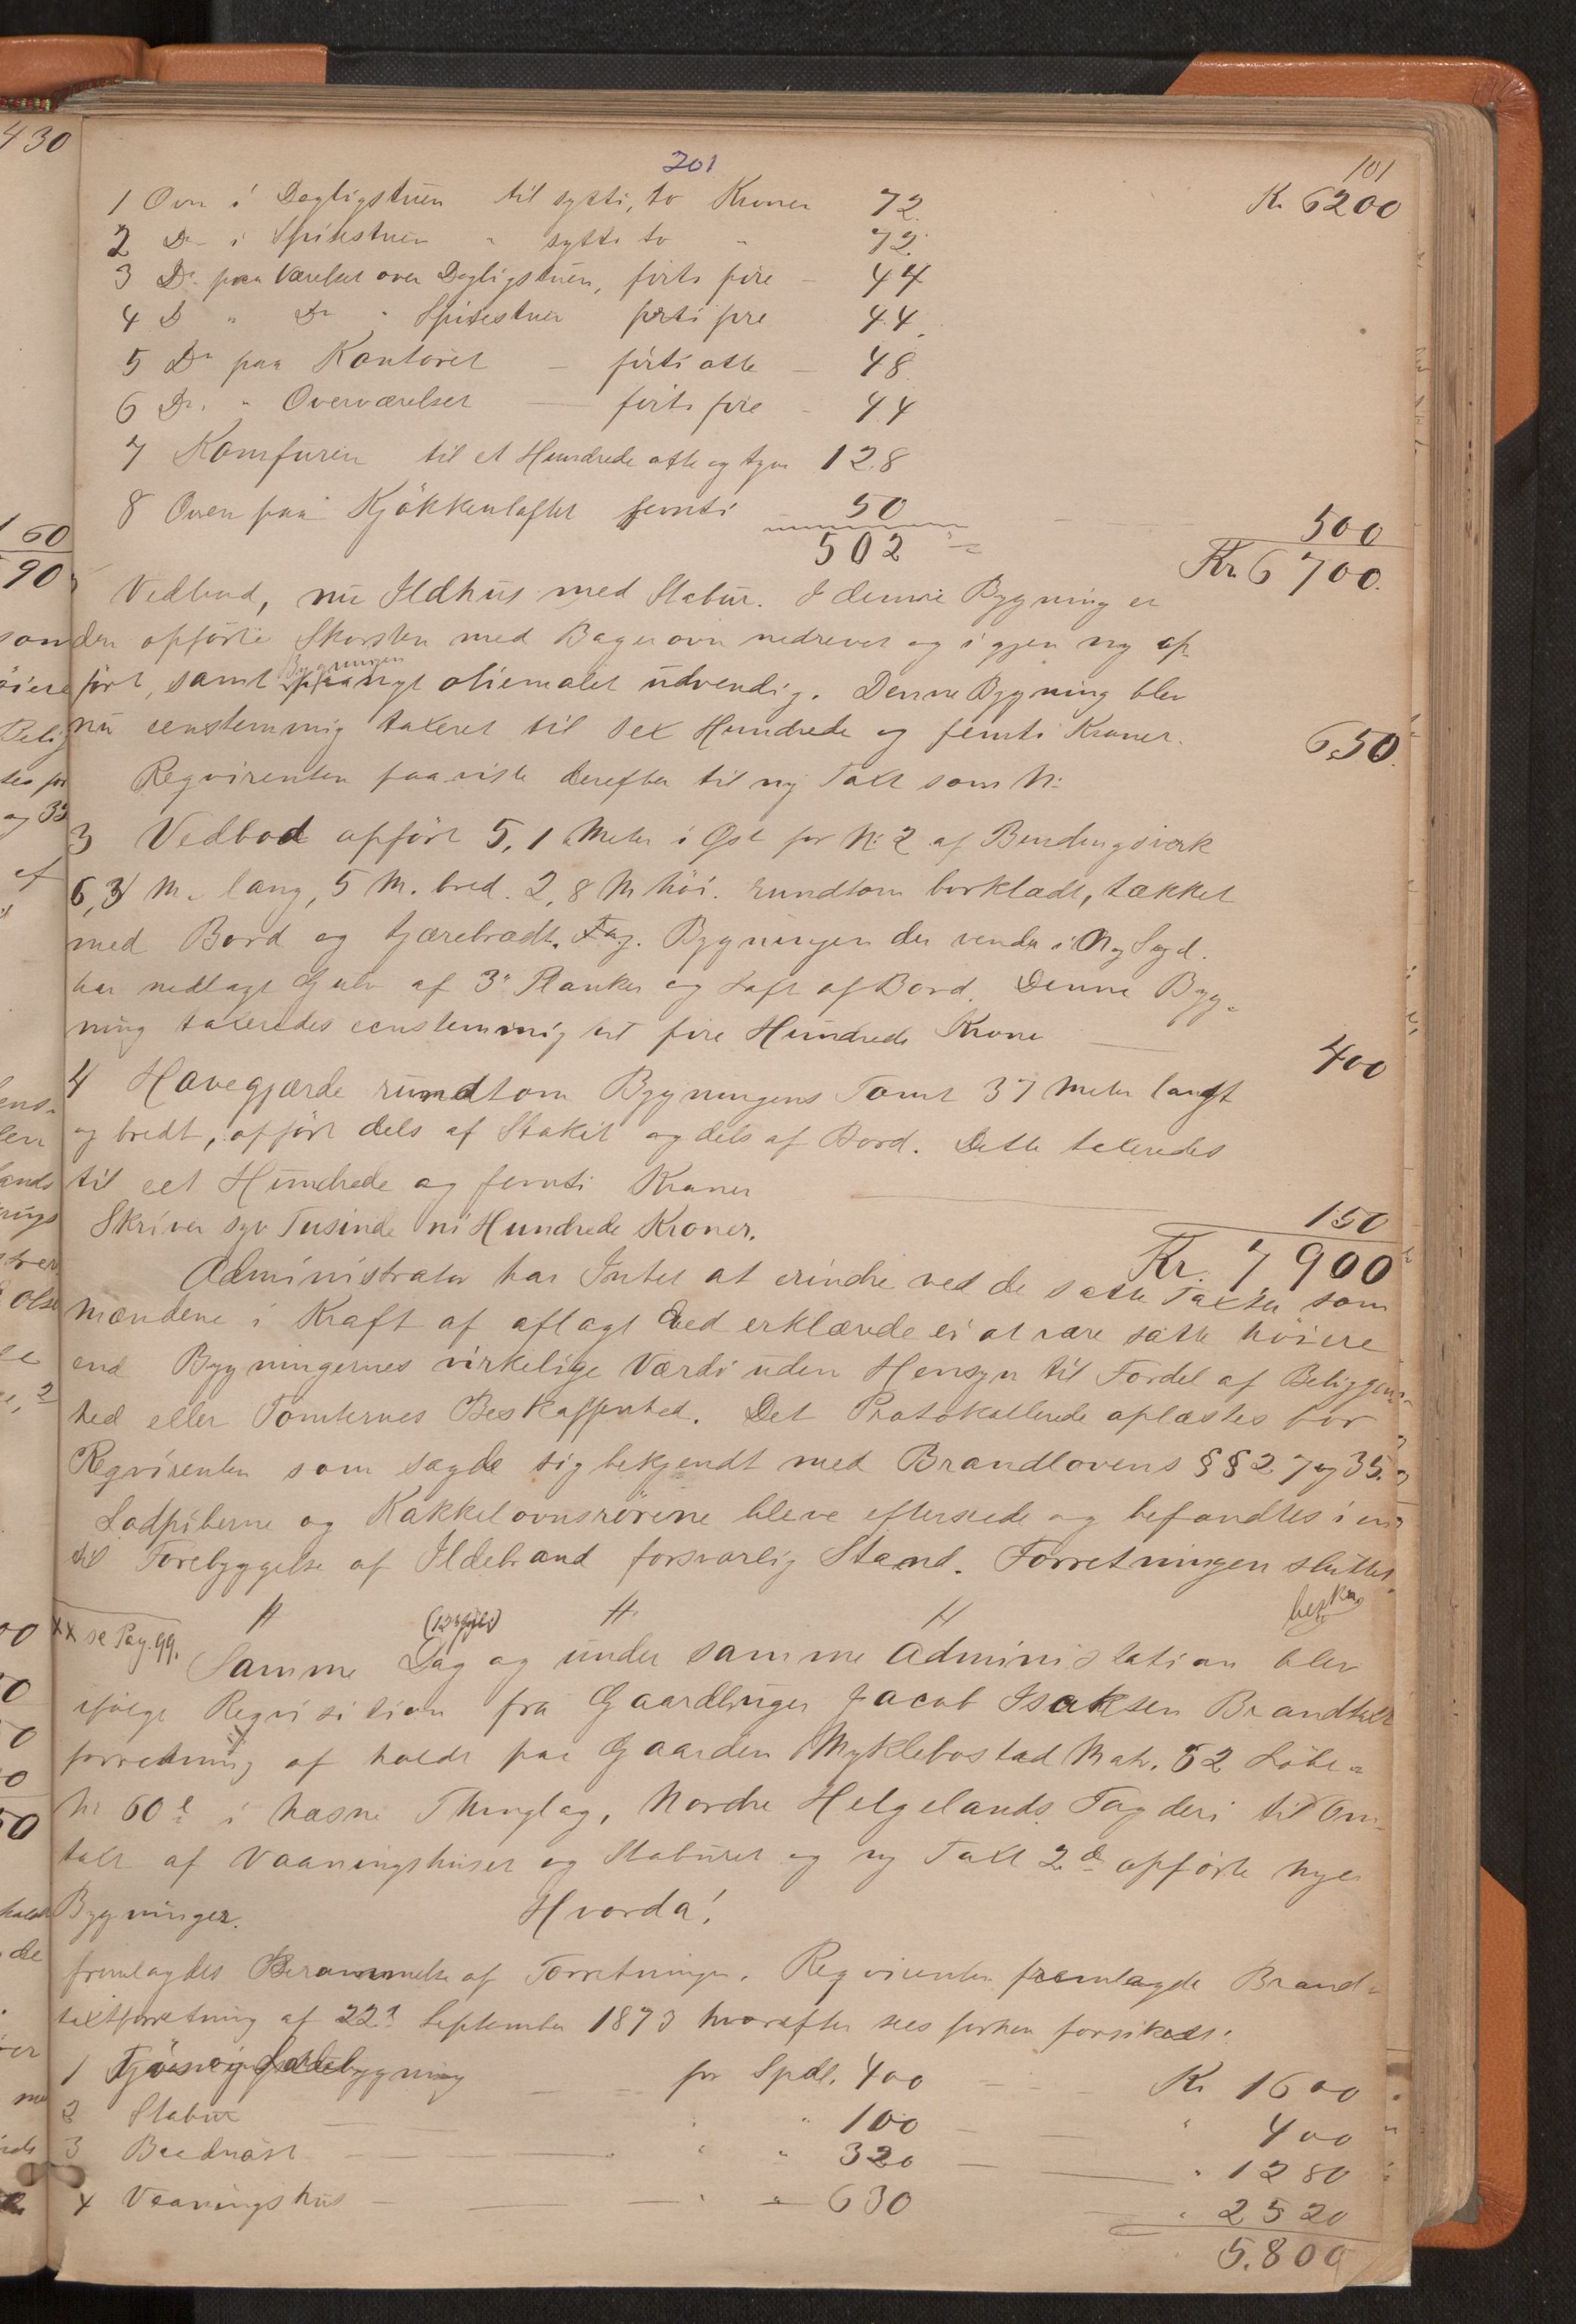 201
101
1 Ovn i Dagligstuen til sytti, to Kroner 72. Kr 6200
2 Do i Spisestuen " sytti to " 72.
3 Do paa Værelset over Dagligstuen, førti fire 44
4 D " Do " Spisestuen førti fire 44.
5 Do paa Kontoret — førti otte — 48
6 Do. " Overværelset — førti fire - 44
7 Komfuren til et Hundrede otte og tyve 128
8 Ovnen paa Kjökkenloftet femti 50
502 = 500
Kr. 6 700.
Vedbod, nu Ildhus med Stabur. I denne Bygning er
den opførte Skorsten med Bagerovn nedrevet og i gjen ny op-
ført, samt Bygningen paanyt oliemalet udvendig. Denne Bygning blev
nu eenstemmig taxeret til sex Hundrede og femti Kroner. 650.
Reqvirenten paaviste derefter til ny Taxt som N:
3 Vedbod opført 5,1 Meter i Øst for N: 2 af Bindingsverk
6,3 M. lang, 5 M. bred. 2,8 M høi. rundtom bordklædt, tækket
med Bord og tjærebrædt. Bygningen der vender i N og Syd.
har nedlagt Gulv af 3" Planker og Loft af Bord. Denne Byg-
ning taxeredes eenstemmig til fire Hundrede Krone — 400
4 Havegjærde rundtom Bygningens Tomt 37 Meter langt
og bredt, opført dels af Stakit og dels af Bord. Dette taxeredes
til eet Hundrede og femti Kroner — 150
Skriver syv Tusinde ni Hundrede Kroner. Kr. 7 900
Administrator har Intet at erindre ved de satte Taxter som
Mændene i Kraft af aflagt Eed erklærede ei at være satte høiere
end Bygningernes virkelige Værdi uden Hensyn til Fordel af Beliggen-
hed eller Tomternes Beskaffenhed. Det Protokollerede oplæstes for
Reqvirenten som sagde sig bekjendt med Brandlovens §§ 27 og 35.
Ladpiberne og Kakkelovnsrørene bleve efterseede og befandtes i en
til Forebyggelse af Ildebrand forsvarlig Stand. Forretningen sluttet.
xx se Pag. 99.
Samme Dag og under samme Administration blev
ifølge Reqvisition fra Gaardbruger Jacob Isaksen Brandtaxt
forretning af holdt paa Gaarden Myklebostad Matr. 52 Løbe-
Nr 60 i Næsne Thinglag, Nordre Helgelands Fogderi til Om-
taxt af Vaaningshuset og Staburet og ny Taxt 2de opførte nye
Bygninger. Hvorda!
fremlagdes Berammelse af Forretningen. Reqvirenten fremlagde Brand-
taxtforretning af 22d September 1873 hvorefter sees forhen forsikret:
1 Fjøs og Ladebygning — for Spdl. 400 — Kr 1600
2 Stabur — " " 100 — " 400
3 Baadnøst — " " 320 — " 1280
4 Vaaningshus — " " 630 " 2520
5.800